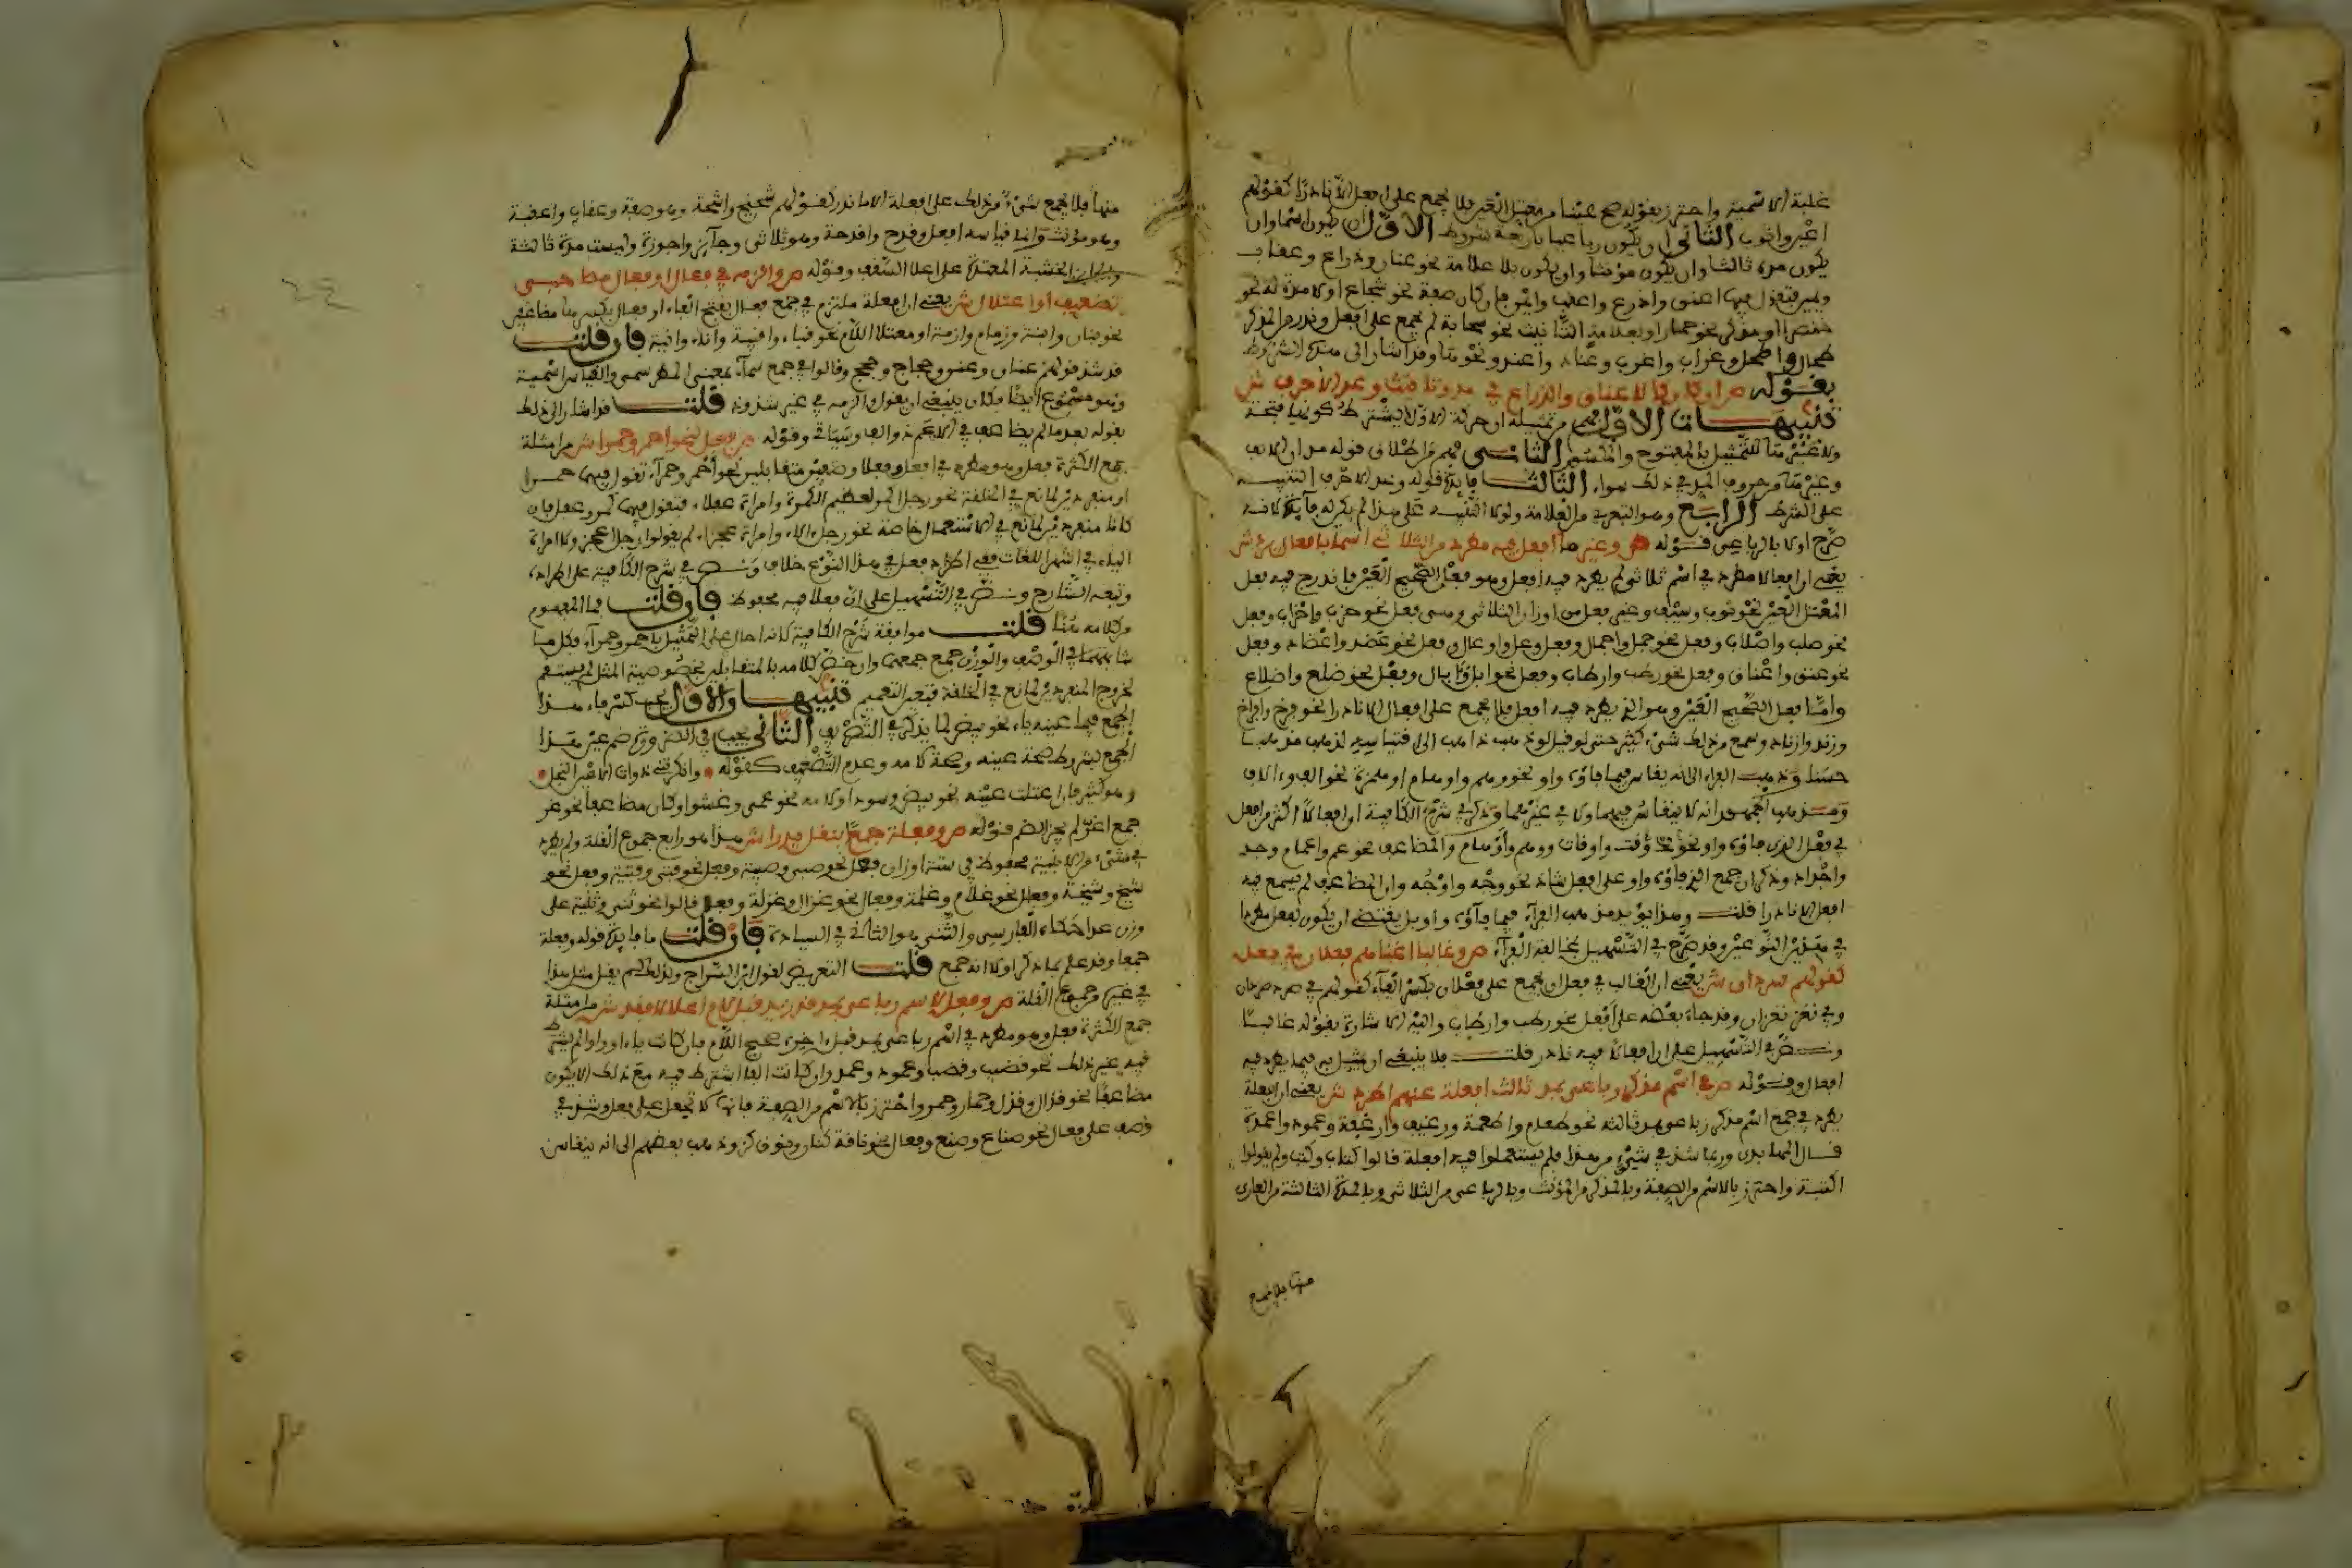 غلبة الاسمية واحترز بقوله صح عينا من معتل العين فلا يجمع على افعل الا نادرا كقولهم
اعين واثوب الثاني ان يكون رباعيا باربعة شروط الاول ان يكون اسما وان
يكون مده ثالثا وان يكون مؤنثا وان يكون بلا علامة نحو عناق وذراع وعقاب
ويمين فتقول فيها اعنق واذرع واعقب وايمن فان كان صفة نحو شجاع او بلا مدة نحو
خنصر او مذكر نحو حمار او بعلامة التانيث نحو سحابة لم يجمع على افعل وندر من المذكر
طحال واطحل وغراب واغرب وعتاد واعتد ونحوها وقد اشار الى هذه الشروط
بقوله ص ان كان كالعناق والذراع في مد وتانيث وعد الاحرف ش
تنبيهات الاول فهم من تمثيله ان حركة الاول لا يشترط كونها فتحة
ولا غيرها للتمثيل بالمفتوح والمكسور الثاني فهم من اطلاق قوله مد ان الالف
وغيرها من حروف المد في ذلك سواء الثالث فائدة قوله وعد الاحرف التنبيه
على الشرط الرابع وهو التعري من العلامة ولولا التنبيه على هذا لم يكن له فائدة لانه
صرح اولا بالرباعي قوله ص وغير ما افعل فيه مطرد من الثلاثي اسما بافعال يرد ش
يعني ان افعالا مطرد في اسم ثلاثي لم يطرد فيه افعل وهو فعل الصحيح العين فاندرج فيه فعل
المعتل العين نحو ثوب وسيف وغير فعل من اوزان الثلاثي وهي فعل نحو حزب واحزاب وفعل
نحو صلب واصلاب وفعل نحو جمل واجمال وفعل نحو وعل واوعال وفعل نحو عضد واعضاد وفعل
نحو عنق واعناق وفعل نحو رطب وارطاب وفعل نحو ابل وآبال وفعل نحو ضلع واضلاع
واما فعل الصحيح العين وهو الذي يطرد فيه افعل فلا يجمع على افعال الا نادرا نحو فرخ وافراخ
وزند وازناد وسمع من ذلك شيء كثير حتى لو قيل لو ذهب ذاهب الى اقتياسه لذهب مذهبا
حسنا وذهب الفراء الى انه يقاس فيما فاؤه واو نحو وهم واوهام او همزة نحو الف وءالاف
ومذهب الجمهور انه لا ينقاس فيهما ولا في غيرهما وذكر في شرح الكافية ان افعالا اكثر من افعل
في فعل الذي فاؤه واو نحو وقت واوقات ووهم واوهام والمضاعف نحو عم واعمام وجد
واجداد وذكر ان جمع الذي فاؤه واو على افعل شاذ نحو وجه واوجه وان المضاعف لم يسمع فيه
افعل الا نادرا قلت وهذا يؤيد مذهب الفراء فيما فاؤه واو بل يقتضي ان يكون افعل مطردا
في هذين النوعين وقد صرح في التسهيل بمخالفة الفراء ص وغالبا اغناهم فعلان في فعل
كقولهم صردان ش يعني ان الغالب في فعل ان يجمع على فعلان بكسر الفاء كقولهم في صرد صردان
وفي نغر نغران وقد جاء بعضه على افعال نحو رطب وارطاب واليه الاشارة بقوله غالبا
ونص في التسهيل على ان افعالا فيه نادر قلت فلا ينبغي ان يمثل به فيما يطرد فيه
افعال وقوله ص في اسم مذكر رباعي بمد ثالث افعلة عنهم اطرد ش يعني ان افعلة
يطرد في جمع اسم مذكر رباعي بمد ثالثه نحو طعام واطعمة ورغيف وارغفة وعمود واعمدة
قال المهاباذي وربما شذ في شيء من هذا فلم يستعملوا فيه افعلة قالوا كتاب وكتب ولم يقولوا
اكتبة واحترز بالاسم من الصفة وبالمذكر من المؤنث وبالرباعي من الثلاثي وبالمدة الثالثة من العاري
منها فلا يجمع
منها فلا يجمع شيء من ذلك على افعلة الا ما ندر كقولهم شحيح واشحة وهو صفة وعقاب واعقبة
وهو مؤنث وانما قياسه افعل وقدح واقدحة وهو ثلاثي وجآئز واجوزة وليست مدته ثالثة
الخشبة الممتدة على اعلا السقف وقوله ص والزمه في فعال او فعال مصاحبي
تضعيف او اعلال ش يعني ان افعلة ملتزم في جمع فعال بفتح الفاء او فعال بكسرها مضاعفين
نحو بتات وابتة وزمام وازمة او معتلا اللام نحو قباء واقبية واناء وانية فان قلت
قد شذ قولهم عنان وعنن وحجاج وحجج وقالوا في جمع سماء بمعنى المطر سمي والقياس اسمية
وهو مسموع ايضا فكان ينبغي ان يقول والزمه في غير شذوذ قلت قد اشار الى ذلك
بقوله بعد ما لم يضاعف في الاعم ذو الالف وسياتي وقوله ص فعل لنحو احمر وحمرا ش من امثلة
جمع الكثرة فعل وهو مطرد في افعل وفعلا وصفين متقابلين نحو احمر وحمراء تقول فيهما حمر
او منفردين لمانع في الخلقة نحو رجل اكمر لعظيم الكمرة وامراة عفلاء فتقول فيهما كمر وعفل فان
كانا منفردين لمانع في الاستعمال خاصة نحو رجل الاء وامراة عجزاء ولم يقولوا رجل اعجز ولا امراة
الياء في اشهر اللغات ففي اطراد فعل في هذا النوع خلاف ونص في شرح الكافية على اطراده
وتبعه الشارح ونص في التسهيل على ان فعلا فيه محفوظ فان قلت فما المفهوم
من كلامه هنا قلت موافقة شرح الكافية لانه احال على التمثيل باحمر وحمراء فكل ما
شابههما في الوصف والوزن جمع جمعهما وان خص كلامه بالمتقابلين بخصوصية المثل لم يستقم
لخروج المنفردين لمانع في الخلقة فتعين التعميم تنبيهان الاول يجب كسر فاء هذا
الجمع فيما عينه ياء نحو بيض لما يذكر في التصريف الثاني يجوز في الشعر ضم عين هذا
الجمع بشروط صحة عينه وصحة لامه وعدم التضعيف كقوله وانكرتني ذوات الاعين النجل
وهو كثير فان اعتلت عينه نحو بيض وسود او لامه نحو عمي وعشو او كان مضاعفا نحو غر
جمع اغر لم يجز الضم قوله ص وفعلة جمعا بنقل يدرا ش هذا هو رابع جموع القلة ولم يطرد
في شيء من الابنية بل محفوظ في ستة اوزان فعيل نحو صبي وصبية وفعل نحو فتى وفتية وفعل نحو
شيخ وشيخة وفعال نحو غلام وغلمة وفعال نحو غزال وغزلة وفعل قالوا نحو ثنى وثنية على
وزن عدا حكاه الفارسي والثنى هو الثاني في السيادة فان قلت ما فائدة قوله وفعلة
جمعا وقد علم بما ذكر اولا انه جمع قلت التعريض لقول ابن السراج ولذلك لم يقل مثل هذا
في غيره من جموع القلة ص وفعل لاسم رباعي بمد قد زيد قبل لام اعلالا فقد ش من امثلة
جمع الكثرة فعل وهو مطرد في اسم رباعي بمد قبل اخره صحيح اللام فان كانت ياء او واوا لم يشترط
فيه غير ذلك نحو قضيب وقضب وعمود وعمد وان كانت الفا اشترط فيه مع ذلك الا يكون
مضاعفا نحو قذال وقذل وحمار وحمر واحترز بالاسم من الصفة فانها لا تجمع على فعل وشذ في
وصف على فعال نحو صناع وصنع وفعال نحو ناقة كناز ونوق كنز وذهب بعضهم الى انه ينقاس